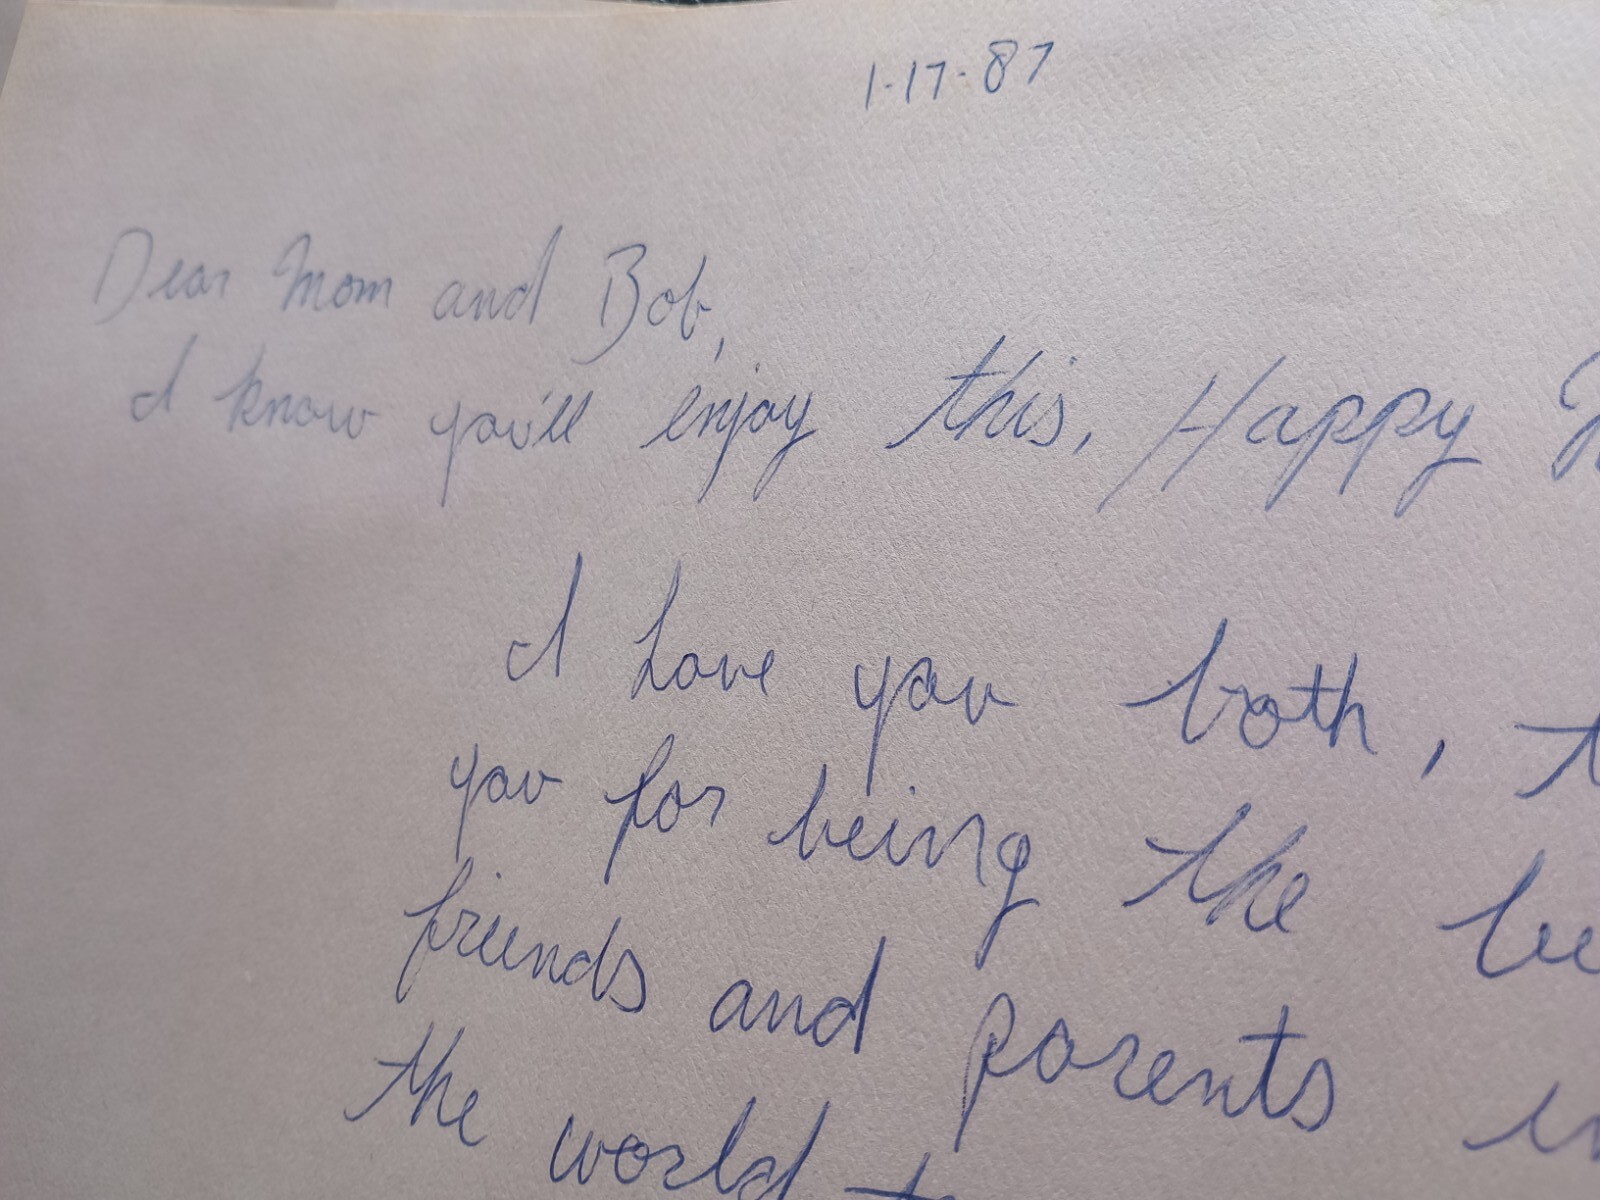 1-17-87
Dear Mom and Bob,
I know you'll enjoy this, Happy
I Love you both,
you for being the
friends and parents
the world